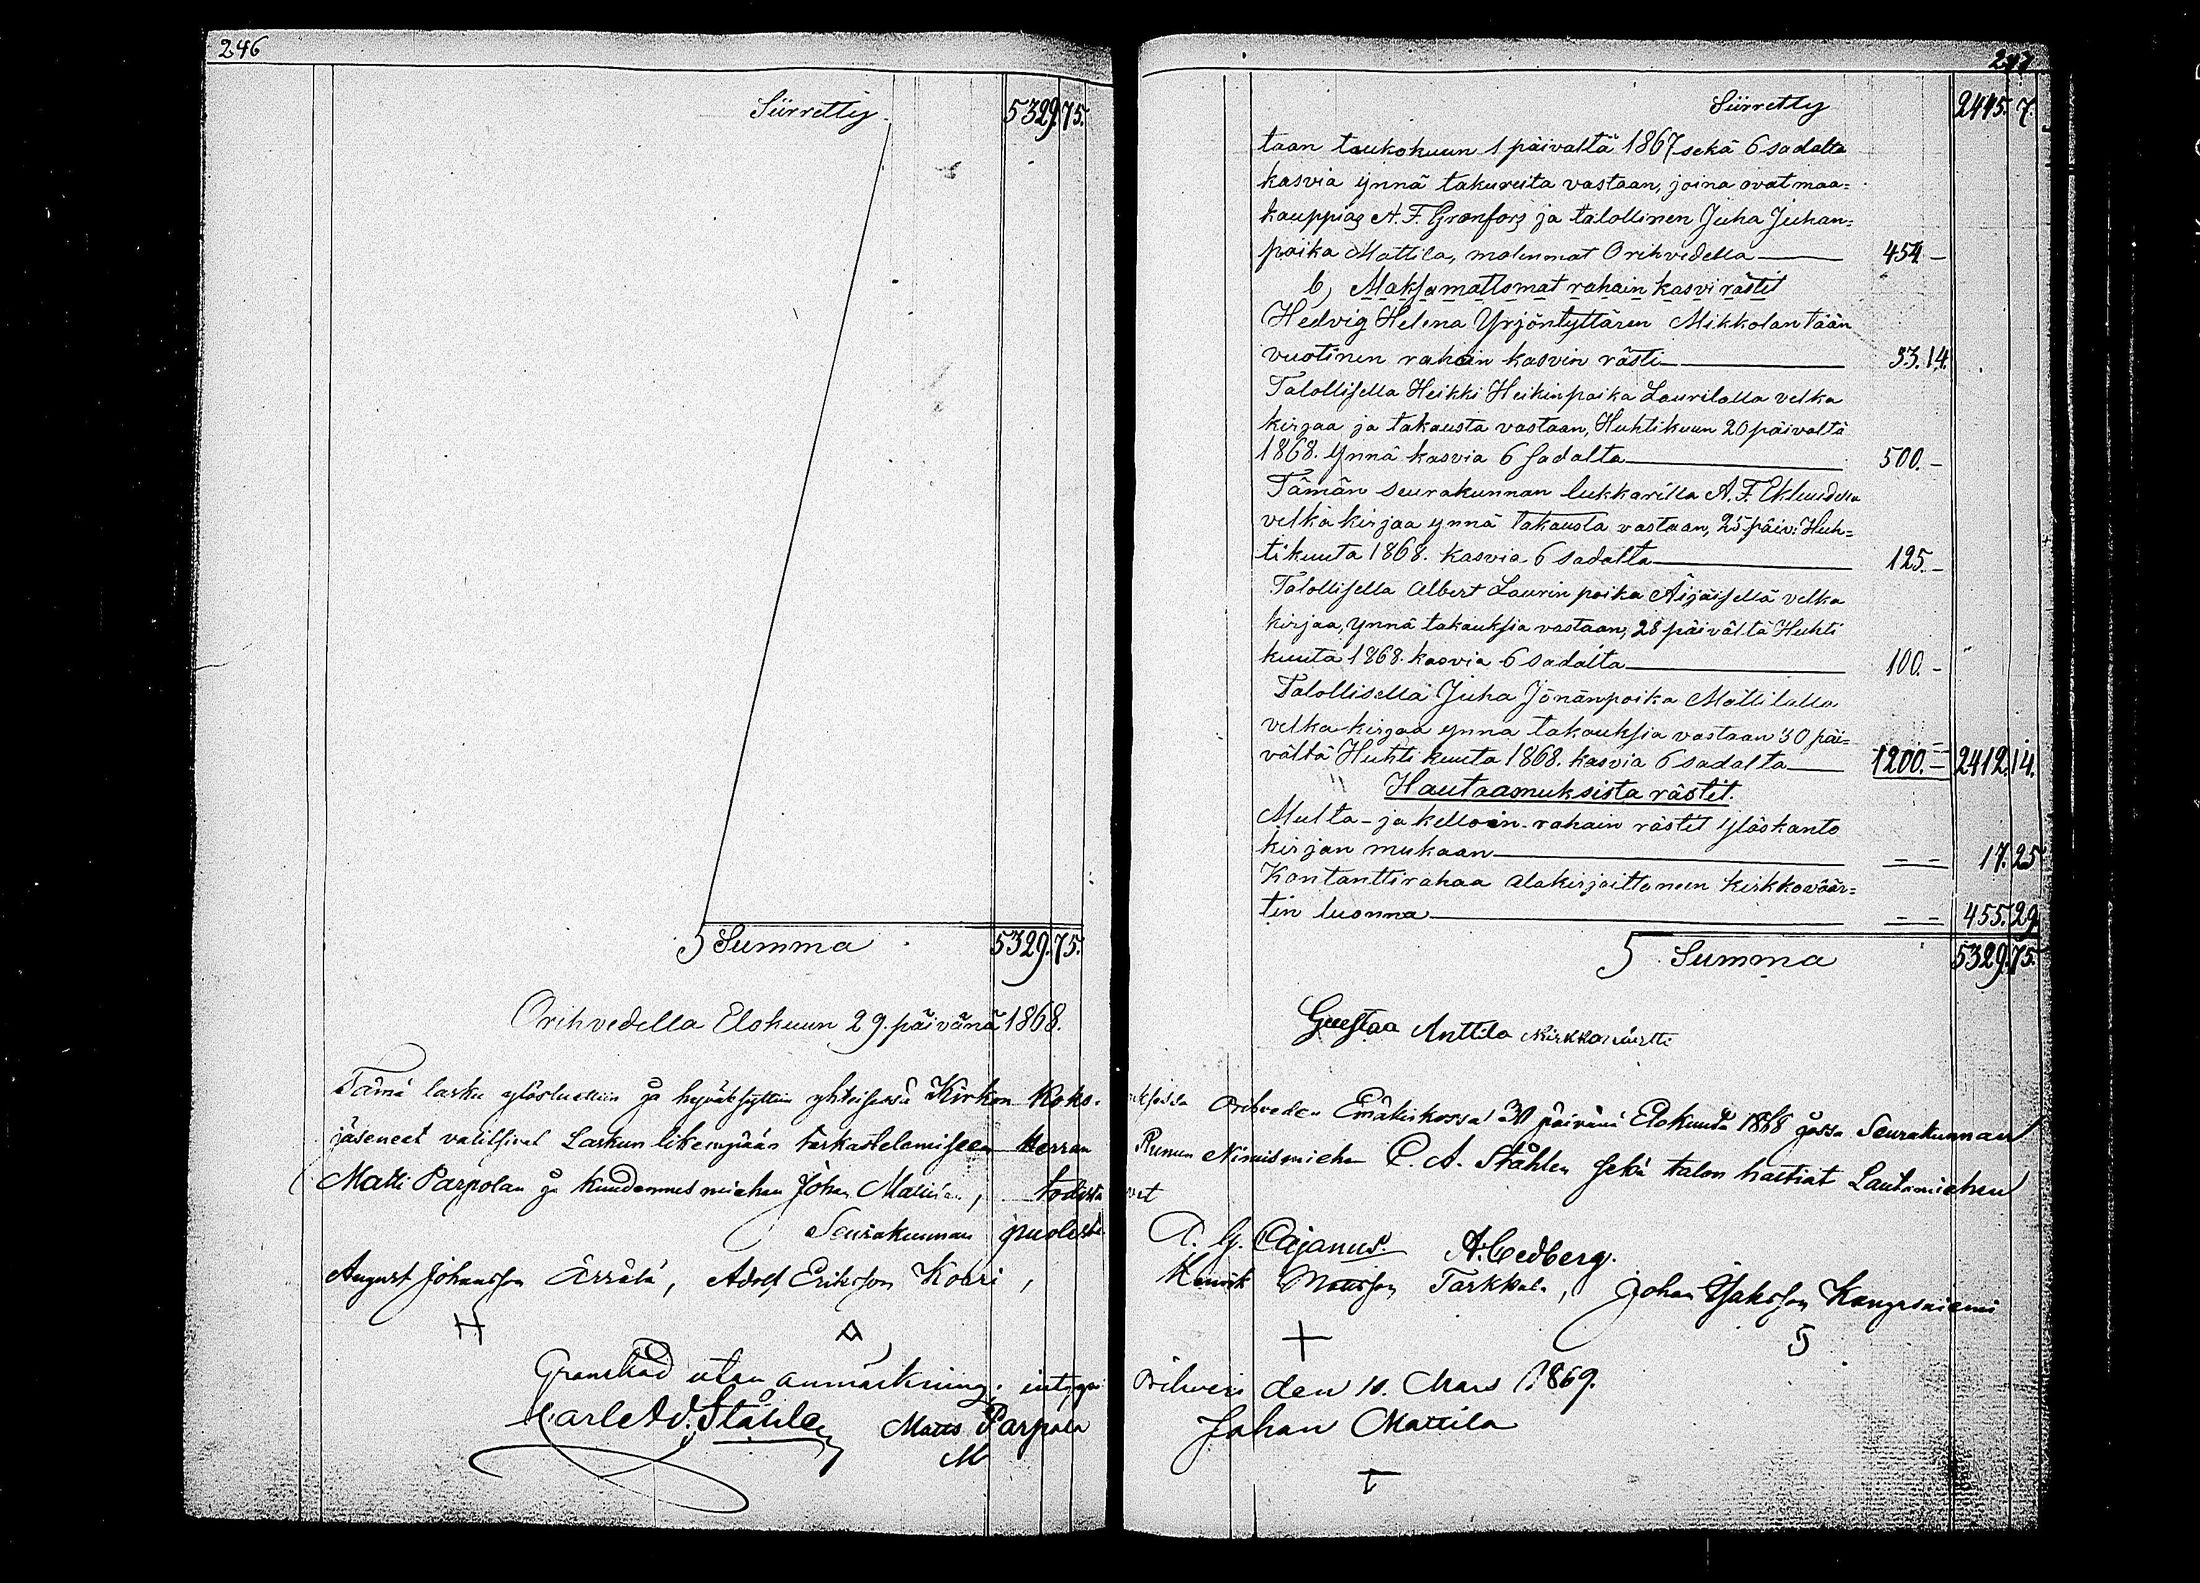 246
Siirretty 5329.75.
Summa 5329.75.
Orihvedella Elokuun 29. päivänä 1868.
Tämä lasku ylösluettiin ja hyväksyttiin yhteisessä Kirkon koko-
jäsenet valitsivat Laskun likempään tarkastelemiseen Herran
Matti Parpolan ja kuudennusmiehen Johan Mattilan, todista
Seurakunnan puolesta
August Johansson Ärrälä, Adolf Eriksson Kouri,
Granskad utan anmärkning, intyga
Carl Ad. Ståhle Matts Parpala
M
247
Siirretty 2445.7.
taan toukokuun 1 päivältä 1867 sekä 6 sadalta
kasvia ynnä takureita vastaan, joina ovat maa=
kauppias A. F. Granfors ja talollinen Juha Juhan=
poika Mattila, molemmat Orihvedella 454 –
b, Maksamattomat rahain kasvi rästit
Hedvig Helena Yrjöntyttären Mikkolan tään
vuotinen rahain kasvin rästi 33.14.
Talollisella Heikki Heikinpoika Laurilalla velka
kirjaa ja takausta vastaan, Huhtikuun 20 päivältä
1868. ynnä kasvia 6 sadalta 500.–
Tämän seurakunnan lukkarilla A. F. Eklundella
velkakirjaa ynnä takausta vastaan, 25 päiv: Huh=
tikuuta 1868. kasvia 6 sadalta 125.–
Talollisella Albert Laurinpoika Äijäisellä velka
kirjaa, ynnä takauksia vastaan, 28 päivältä Huhti
kuuta 1868. kasvia 6 sadalta 100.–
Talollisella Juha Jonanpoika Mattilalla
velkakirjaa ynna takauksia vastaan 30 päi=
vältä Huhtikuuta 1868. kasvia 6 sadalta 1200.– 2412.14.
Hautaamuksista rästit.
Multa- ja kelloin-rahain rästit ylöskanto
kirjan mukaan – – 17.25
Kontanttirahaa alakirjoittaneen kirkkoväär=
tin luonna – – 455.29
Summa 5329.75.
Gustaa Anttila Kirkkoväärtti
uksessa Orihveden Emäkirkossa 30 päivänä Elokuuta 1868 jossa Seurakunnan
Nimismiehen C. A. Ståhlen sekä talon haltiat Lautamiehen
vat
A. G. Cajanus. A. Cedberg.
Henrik Mattsson Tarkkala, Johan Isaksson Kangasniemi
Orihvesi den 10. Mars 1869.
Johan Mattila